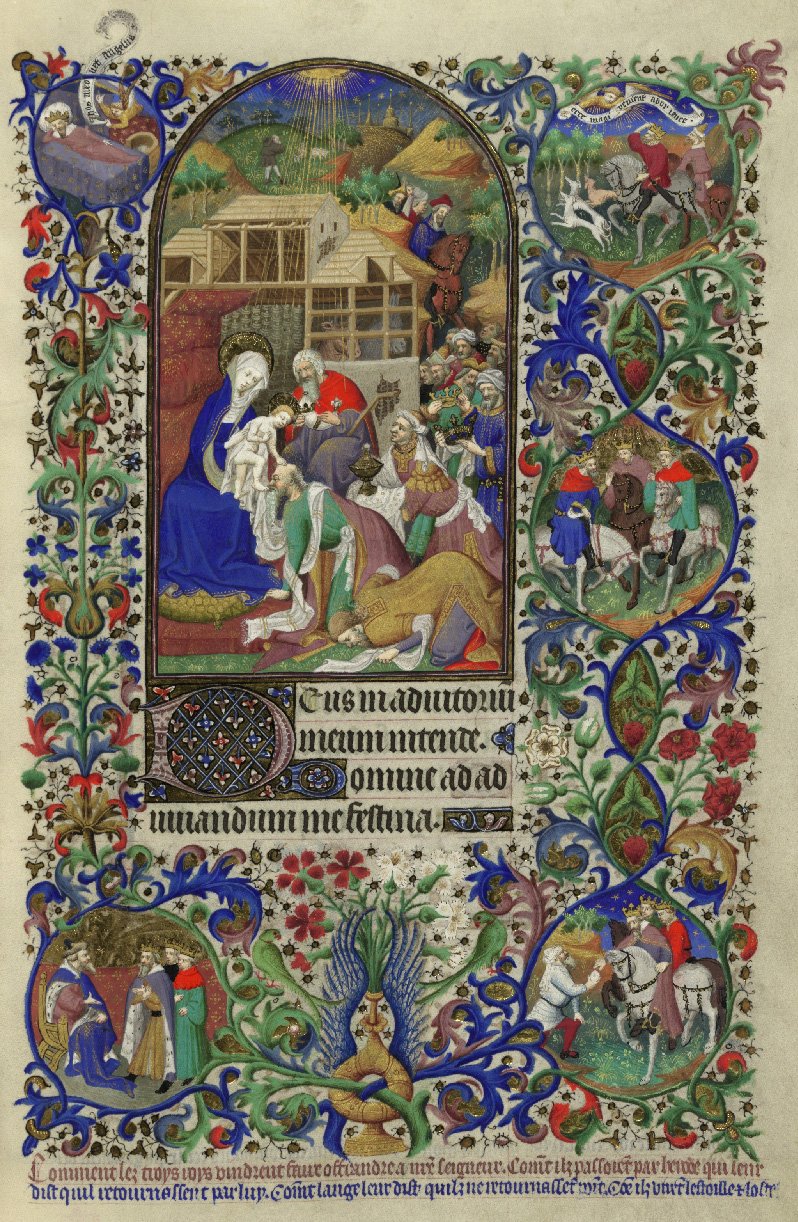 tres magi veniunt
Deus in adiutoriu
meum intende.
Domine ad ad
iuuandum me festina.
Comment lez troys roys vindrent faire offrandre a nr̄e seigneur. Com̄t ilz passoiēt par herode qui leur
dist quil retournassent par luy. Com̄t lange leur dist quilz ne retournassēt Cōe ilz virēt lestoille &